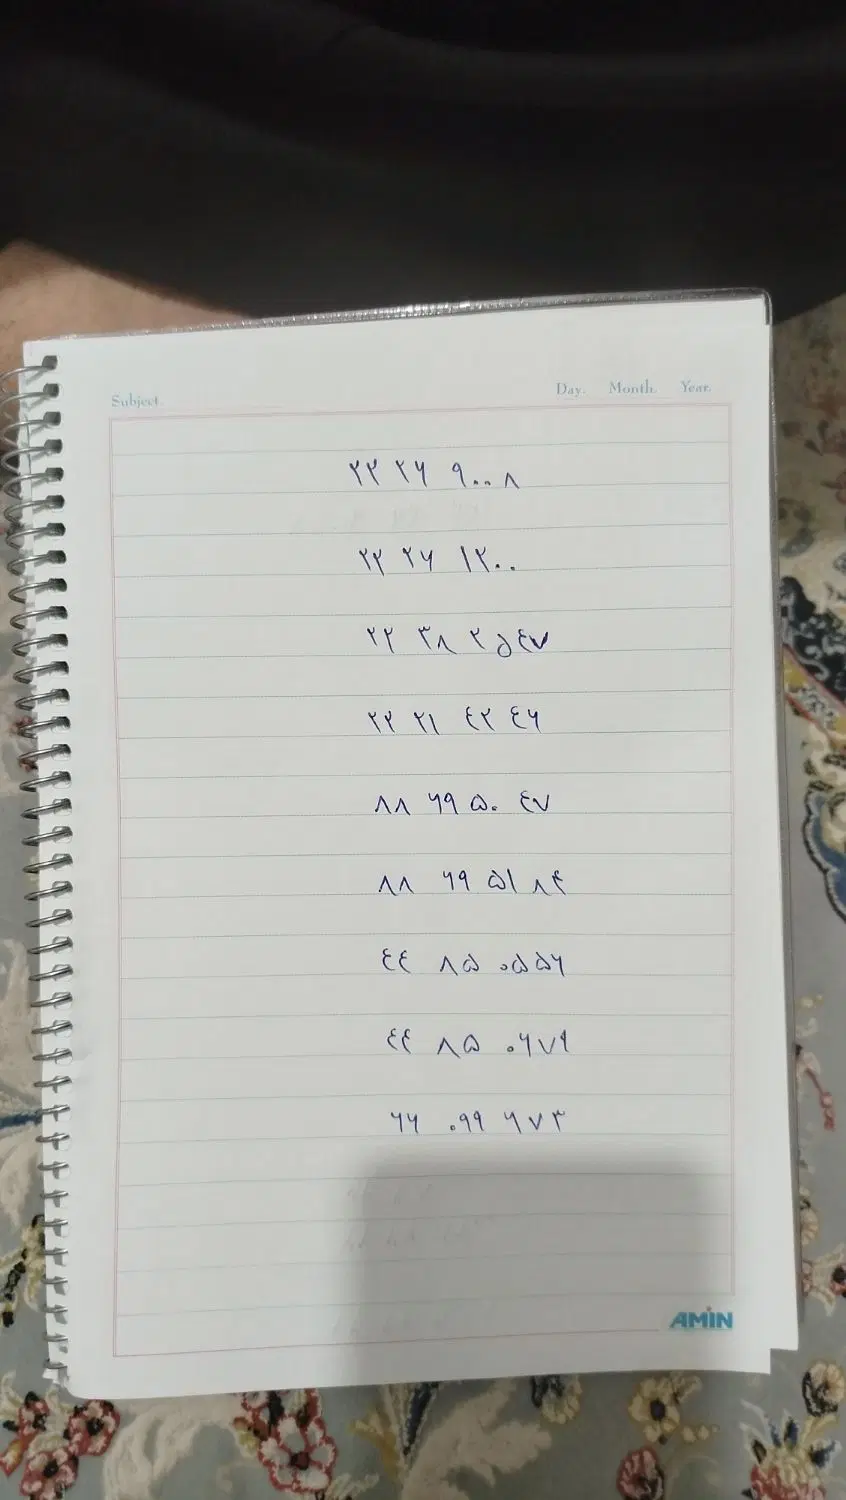 Subject. Day. Month. Year.
۲۲ ۲۶ ۹۰۰۸
۲۲ ۲۶ ۱۲۰۰
۲۲ ۳۸ ۲۵۴۷
۲۲ ۲۱ ۴۲ ۴۶
۸۸ ۶۹ ۵۰ ۴۷
۸۸ ۶۹ ۵۱ ۸۴
۴۴ ۸۵ ۰۵۵۶
۴۴ ۸۵ ۰۶۷۹
۶۶ ۰۹۹ ۶۷۳
AMIN